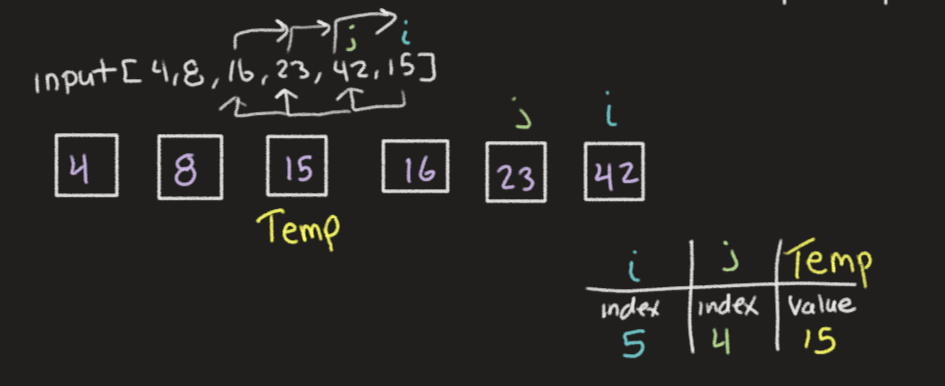 j i
input[4,8,16,23,42,15]
j i
4 8 15 16 23 42
Temp
i j Temp
index index Value
5 4 15